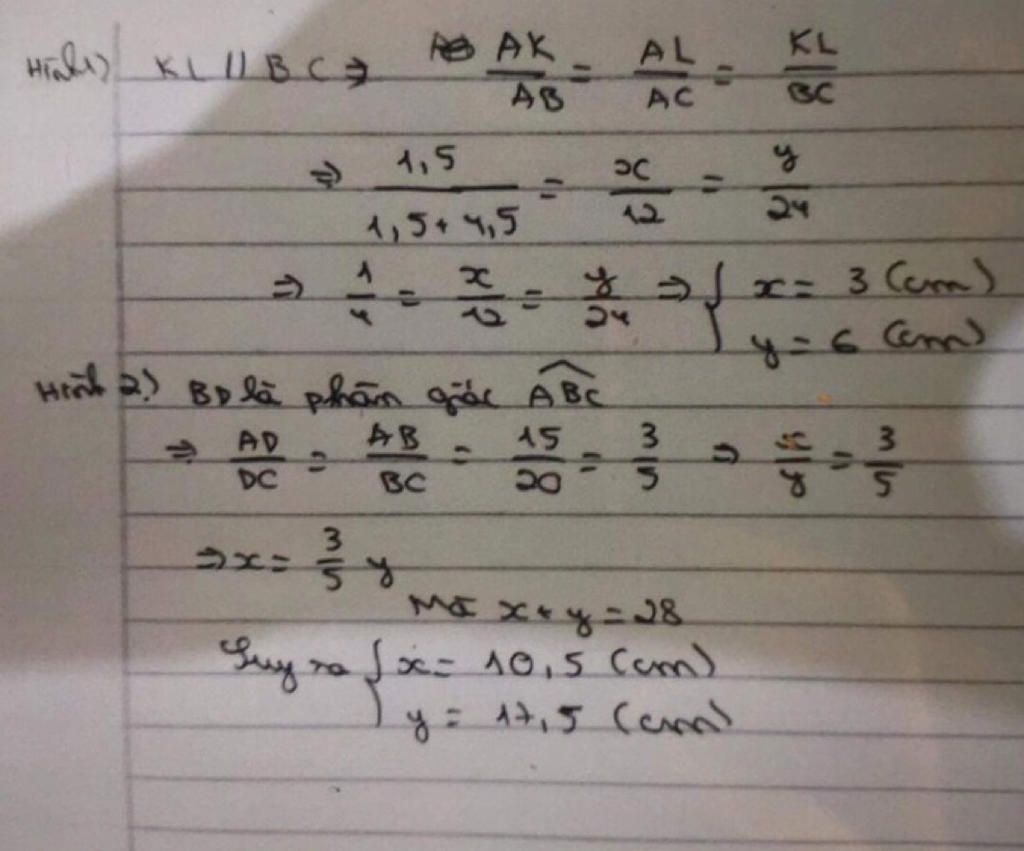 Hình 1) KL // BC ⇒ AK/AB = AL/AC = KL/BC
⇒ 1,5/(1,5+4,5) = x/12 = y/24
⇒ 1/4 = x/12 = y/24 ⇒ { x = 3 (cm)
y = 6 (cm)
Hình 2) BD là phân giác ABC
⇒ AD/DC = AB/BC = 15/20 = 3/5 ⇒ x/y = 3/5
⇒ x = 3/5 y
Mà x + y = 28
Suy ra { x = 10,5 (cm)
y = 17,5 (cm)